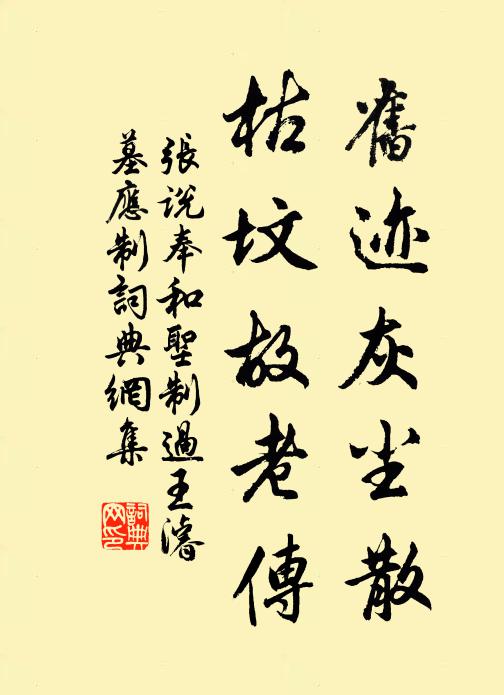 舊迹灰尘散
枯坟故老傳
張説奉和聖制過王濬
墓應制詞典網集
詞典
网印